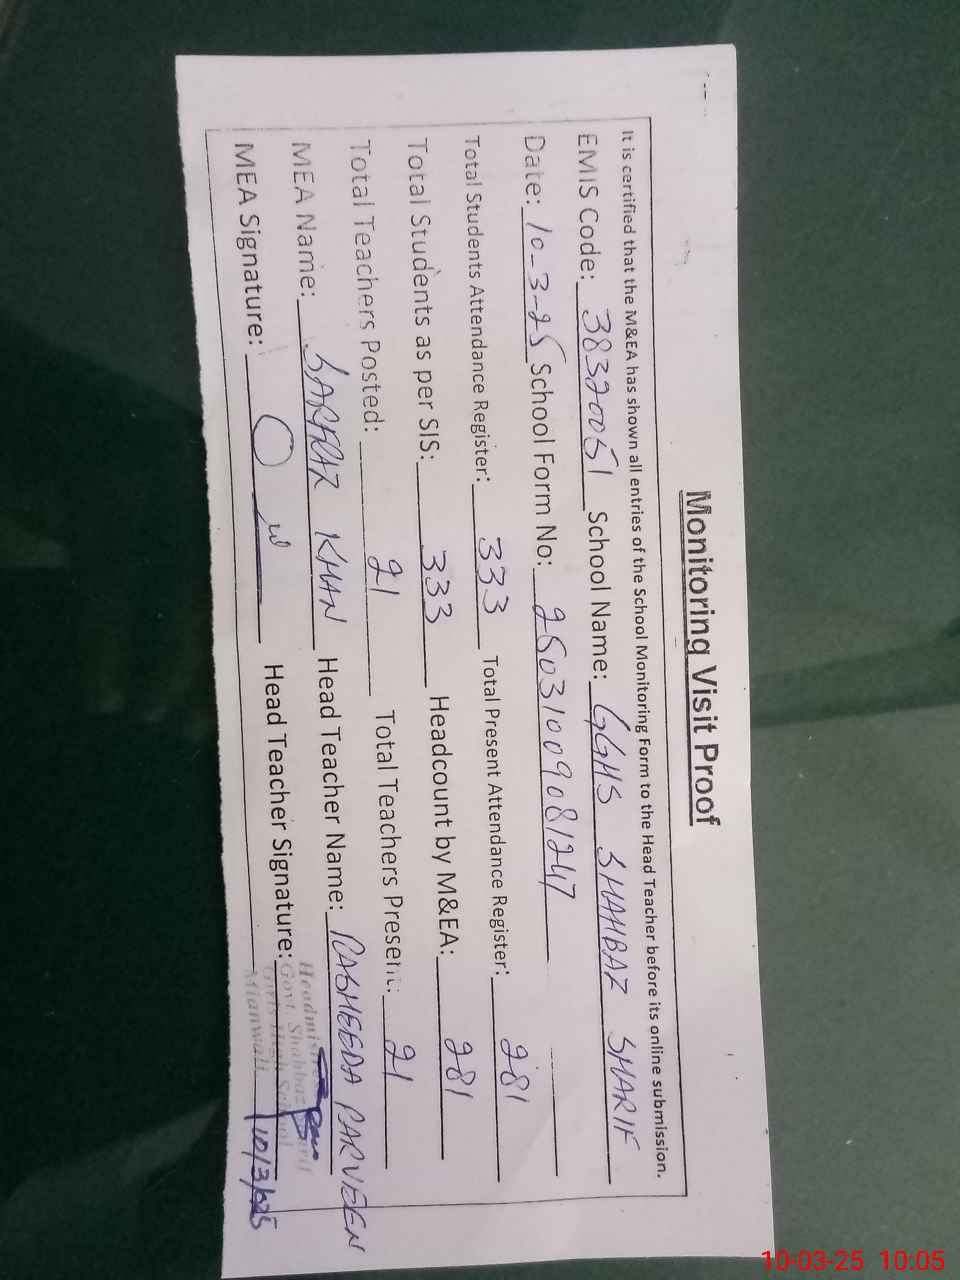 Monitoring Visit Proof
It is certified that the M&EA has shown all entries of the School Monitoring Form to the Head Teacher before its online submission.
EMIS Code: 38320051 School Name: GGHS SHAHBAZ SHARIF
Date: 10-3-25 School Form No: 25031009081247
Total Students Attendance Register: 333 Total Present Attendance Register: 281
Total Students as per SIS: 333 Headcount by M&EA: 281
Total Teachers Posted: 21 Total Teachers Present: 21
MEA Name: SARFRAZ KHAN Head Teacher Name: RASHEEDA PARVEEN
MEA Signature: Head Teacher Signature:
Headmistress
Govt. Shahbaz Sharif
Girls High School
Mianwali
10/3/025
10-03-25 10:05